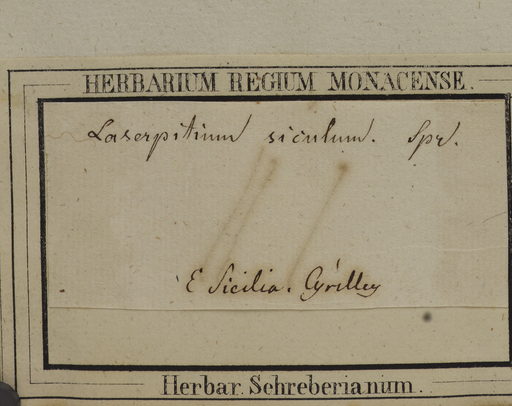 HERBARIUM REGIUM MONACENSE.
Laserpitium siculum. Spr.
E Sicilia. Cyrilley
Herbar. Schreberianum.